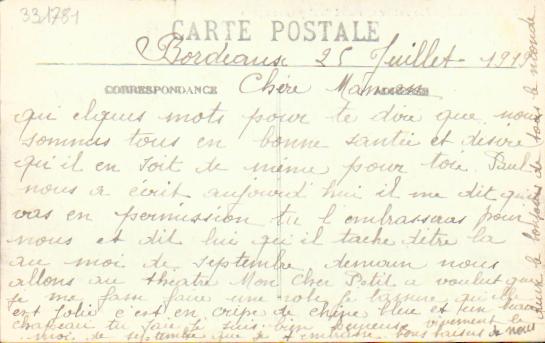 33.1781
CARTE POSTALE
Bordeaux 25 Juillet 1919
CORRESPONDANCE
Chère Maman
qui elques mots pour te dire que nous
sommes tous en bonne santée et desire
qu'il en soit de même pour toie. Paul
nous a écrit aujourd'hui il me dit qu'il
vas en permission tu l'embrasseras pour
nous et dit lui qu'il tache d'être la
au moi de septembre demain nous
allons au theatre Mon Cher Petit a voulut que
je me fasse faire une robe qu'elle
est Jolie c'est en crêpe de chine bleu et un
chapeau tu je suis bien vivement le
moi de septembre que je t'embrasse bons baisers de nous
tous le monde